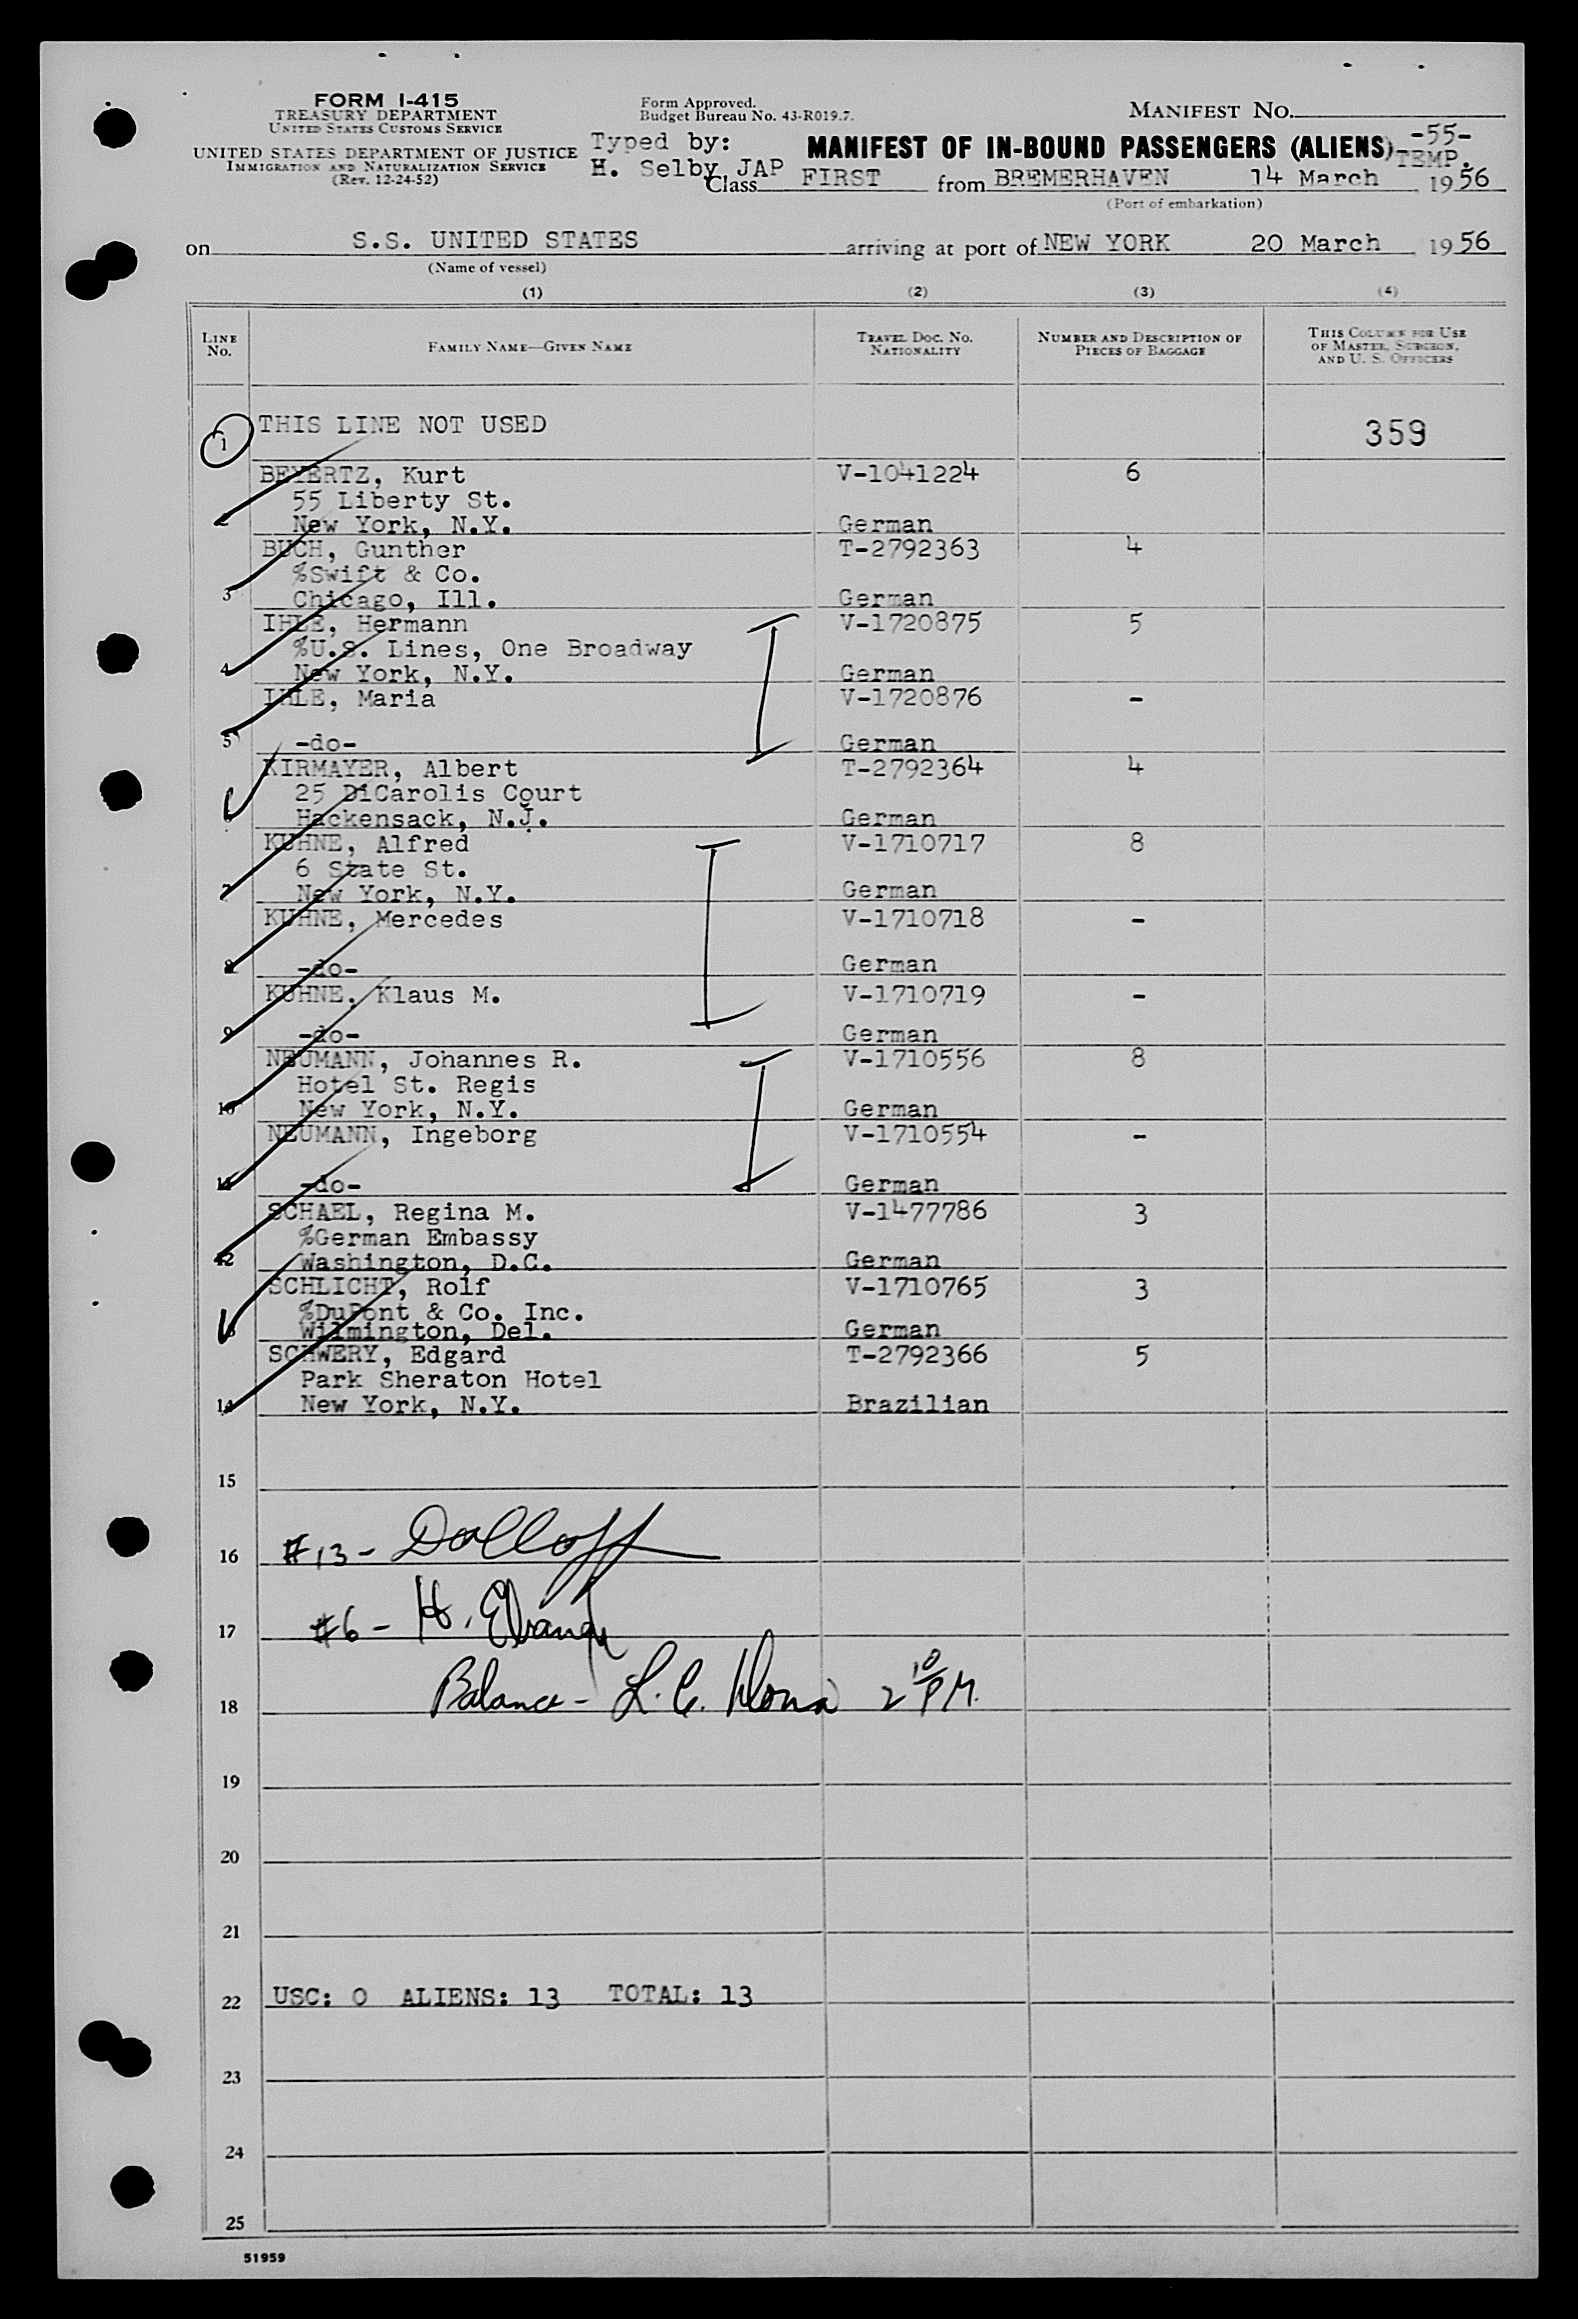 FORM I-415
TREASURY DEPARTMENT
UNITED STATES CUSTOMS SERVICE
UNITED STATES DEPARTMENT OF JUSTICE
IMMIGRATION AND NATURALIZATION SERVICE
(Rev. 12-24-52)
Form Approved.
Budget Bureau No. 43-R019.7.
Typed by:
H. Selby JAP
MANIFEST NO.
MANIFEST OF IN-BOUND PASSENGERS (ALIENS) -55-
TEMP.
Class FIRST from BREMERHAVEN 14 March 1956
(Port of embarkation)
on S.S. UNITED STATES arriving at port of NEW YORK 20 March 1956
(Name of vessel)
(1) (2) (3) (4)
LINE NO. FAMILY NAME—GIVEN NAME TRAVEL DOC. NO. NATIONALITY NUMBER AND DESCRIPTION OF PIECES OF BAGGAGE THIS COLUMN FOR USE OF MASTER, SURGEON, AND U. S. OFFICERS
1 THIS LINE NOT USED 359
BEYERTZ, Kurt V-1041224 6
55 Liberty St.
2 New York, N.Y. German
BUCH, Gunther T-2792363 4
%Swift & Co.
3 Chicago, Ill. German
IHLE, Hermann V-1720875 5
%U.S. Lines, One Broadway
4 New York, N.Y. German
IHLE, Maria V-1720876 -
5 -do- German
KIRMAYER, Albert T-2792364 4
25 DiCarolis Court
6 Hackensack, N.J. German
KUHNE, Alfred V-1710717 8
6 State St.
7 New York, N.Y. German
KUHNE, Mercedes V-1710718 -
8 -do- German
KUHNE, Klaus M. V-1710719 -
9 -do- German
NEUMANN, Johannes R. V-1710556 8
Hotel St. Regis
10 New York, N.Y. German
NEUMANN, Ingeborg V-1710554 -
11 -do- German
SCHAEL, Regina M. V-1477786 3
%German Embassy
12 Washington, D.C. German
SCHLICHT, Rolf V-1710765 3
%DuPont & Co. Inc.
13 Wilmington, Del. German
SCHWERY, Edgard T-2792366 5
Park Sheraton Hotel
14 New York, N.Y. Brazilian
15
16 #13 - Dolloff
17 #6 - H.
18 Balance - L. C. 2 10 PM.
19
20
21
22 USC: 0 ALIENS: 13 TOTAL: 13
23
24
25
51959